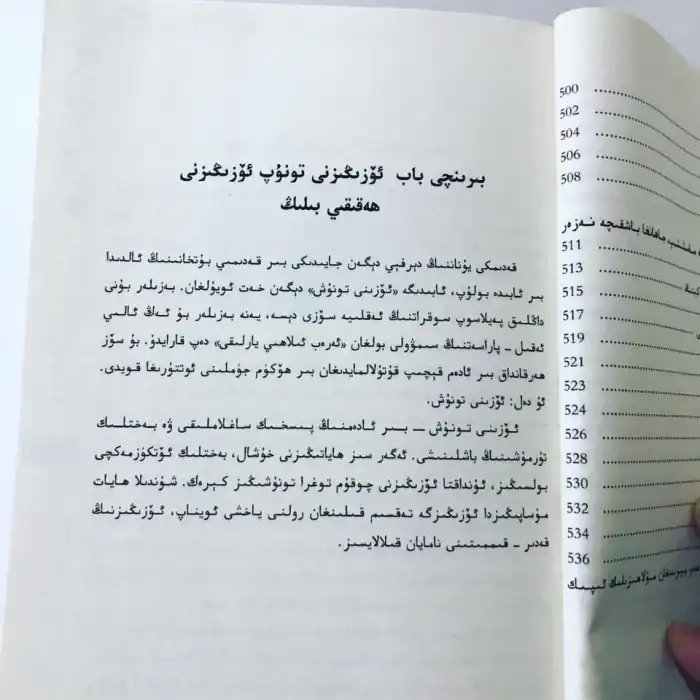 بىرىنچى باب ئۆزىڭىزنى تونۇپ ئۆزىڭىزنى
ھەقىقىي بىلىڭ
قەدىمكى يۇناننىڭ دېرفېي دېگەن جايىدىكى بىر قەدىمىي بۇتخانىنىڭ ئالدىدا
بىر ئابىدە بولۇپ، ئابىدىگە «ئۆزىنى تونۇش» دېگەن خەت ئويۇلغان. بەزىلەر بۇنى
داڭلىق پەيلاسوپ سوقراتنىڭ ئەقلىيە سۆزى دېسە، يەنە بەزىلەر بۇ ئەڭ ئالىي
ئەقىل - پاراسەتنىڭ سىمۋولى بولغان «ئەرەب ئىلاھىي يارلىقى» دەپ قارايدۇ. بۇ سۆز
ھەرقانداق بىر ئادەم قېچىپ قۇتۇلالمايدىغان بىر ھۆكۈم جۈملىنى ئوتتۇرىغا قويدى.
ئۇ دەل: ئۆزىنى تونۇش.
ئۆزىنى تونۇش — بىر ئادەمنىڭ پىسخىك ساغلاملىقى ۋە بەختلىك
تۇرمۇشىنىڭ باشلىنىشى. ئەگەر سىز ھاياتىڭىزنى خۇشال، بەختلىك ئۆتكۈزمەكچى
بولسىڭىز، ئۇنداقتا ئۆزىڭىزنى چوقۇم توغرا تونۇشىڭىز كېرەك. شۇندىلا ھايات
مۇساپىڭىزدا ئۆزىڭىزگە تەقسىم قىلىنغان رولنى ياخشى ئويناپ، ئۆزىڭىزنىڭ
قەدىر - قىممىتىنى نامايان قىلالايسىز.
500
502
504
506
508
باشقىچە نەزەر
511
513
515
517
519
521
523
524
526
528
530
532
534
536